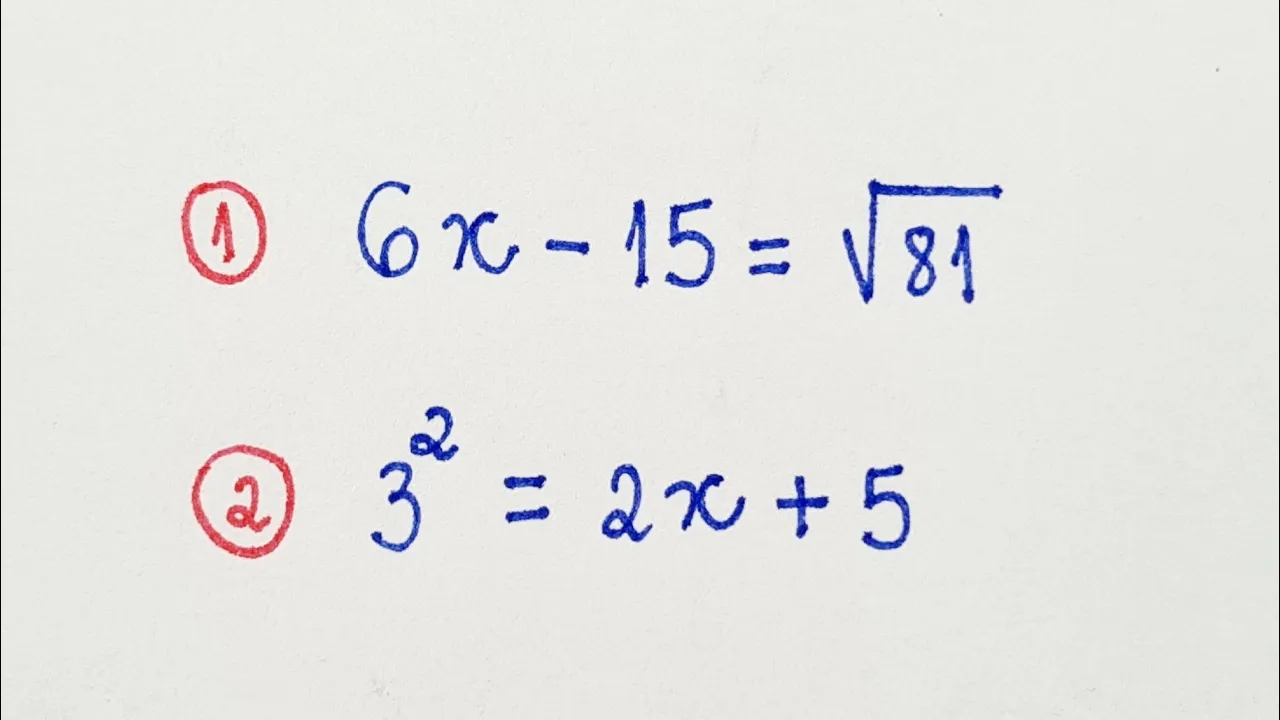 ① 6x - 15 = √81
② 3² = 2x + 5